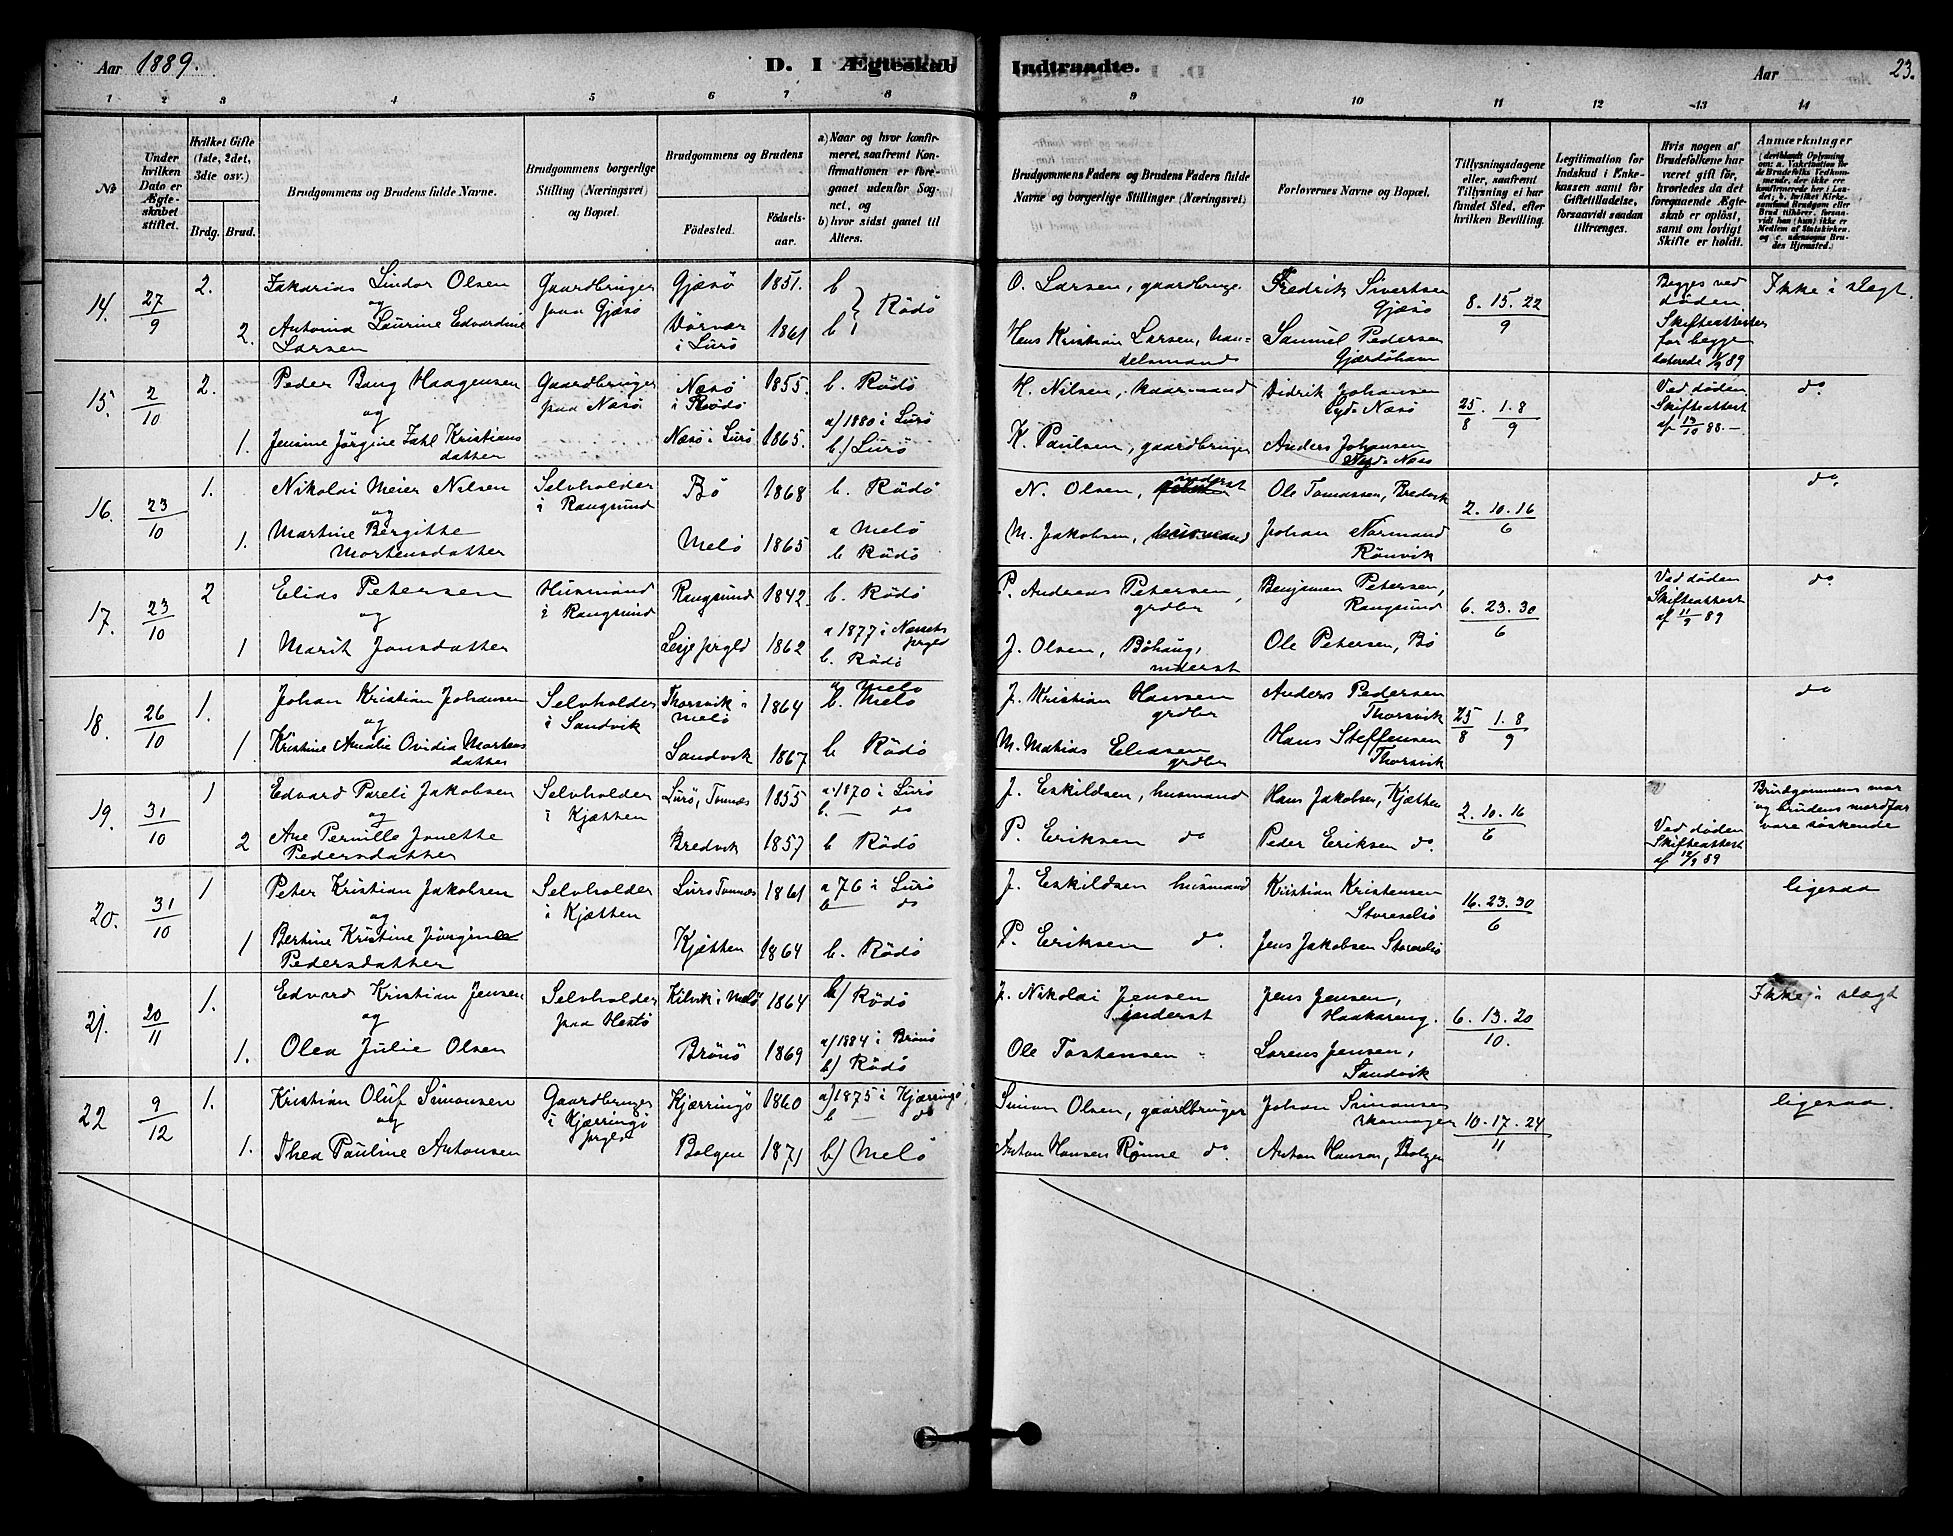 Aar 1889. D. I Ægteskab Indtraadte. Aar 23.
1 2 3 4 5 6 7 8 9 10 11 12 13 14
No
Under hvilken Dato er Ægteskabet stiftet.
Hvilket Gifte (1ste, 2det, 3die osv.)
Brdg. Brud.
Brudgommens og Brudens fulde Navne.
Brudgommens borgerlige Stilling (Næringsvei) og Bopæl.
Brudgommens og Brudens
Fødested. Fødselsaar.
a) Naar og hvor konfirmeret, saafremt Konfirmationen er foregaaet udenfor Sognet, og
b) hvor sidst gaaet til Alters.
Brudgommens Faders og Brudens Faders fulde Navne og borgerlige Stillinger (Næringsvei)
Forlovernes Navne og Bopæl.
Tillysningsdagene eller, saafremt Tillysning ei har fundet Sted, efter hvilken Bevilling.
Legitimation for Indskud i Enkekassen samt for Giftetilladelse, forsaavidt saadan tiltrænges.
Hvis nogen af Brudefolkene har været gift før, hvorledes da det foregaaende Ægteskab er opløst, samt om lovligt Skifte er holdt.
Anmærkninger
14. 27/9 2. Zakarias Lindor Olsen Gaardbruger paa Gjæsø Gjæsø 1851. b O. Larsen, gaardbruger Fredrik Sivertsen Gjæsø 8. 15. 22/9 Begges ved døden Skifteattester for begge daterede Ikke i slægt.
og
2. Antonia Laurine Edvardine Larsen Vörvær i Lurö 1861 b Rödö Hens Kristian Larsen, handelsmand Samuel Pedersen
15. 2/10 2. Peder Bang Haagensen Gaardbruger paa Næsö Næsö i Rödö 1855. b. Rödö H. Nilsen, Didrik Johansen Næsö 25/8 1. 8/9 Ved døden Skifteattest af 13/10 88. do
og
1. Jensine Jörgine Zahl Kristiansdatter Næsö i Lurö 1865. a/ 1880 i Lurö b./ Lurö K. Paulsen, gaardbruger Anders Johansen Næsö
16. 23/10 1. Nikolai Meier Nilsen Selvholder i Rangsund Bö 1868 b. Rödö N. Olsen, inderst Ole Tomassen, Bredvik 2. 10. 16/6 do
og
1. Martine Bergitte Mortensdatter Melö 1865 a Melö b Rödö M. Jakobsen, husmand Johan Normand Rönvik
17. 23/10 2 Elias Petersen Husmand i Rangsund Rangsund 1842. b. Rödö P. Andreas Petersen, grdbr Benjamin Petersen, Rangsund 6. 23. 30/6 Ved døden Skifteattest af 11/9 89 do
og
1 Marit Jonsdatter Lesje prgld 1862 a 1877 i prgld b. Rödö J. Olsen, inderst Ole Petersen, Bö
18. 26/10 1. Johan Kristian Johansen Selvholder i Sandvik Thorsvik i Melö 1864 a Melö b. Melö J. Kristian Hansen grdbr Anders Pedersen Thorsvik 25/8 1. 8/9 do
og
1 Kristine Amalie Ovidia Mortensdatter Sandvik 1867 b Rödö M. Mathias Eliasen grdbr Hans Steffensen Thorsvik
19. 31/10 1 Edvard Pareli Jakobsen Selvholder i Kjætten Lurö, Tonnæs 1855 a. 1870 i Lurö b. — do J. Eskildsen, husmand Hans Jakobsen, Kjætten 2. 10. 16/6 Brudgommens mor og brudens mordfar vare søskende
og
2 Ane Pernille Jonette Pedersdatter Bredvik 1857 b Rödö P. Eriksen do Peder Eriksen do. Ved døden Skifteattest af 12/9 89
20. 31/10 1 Peter Kristian Jakobsen Selvholder i Kjætten Lurö Tonnæs 1861 a 76 i Lurö b — do J. Eskildsen husmand Kristian Kristensen Storeselsö 16. 23. 30/6 ligesaa
og
1 Bertine Kristine Jörgine Pedersdatter Kjætten 1864 b. Rödö P. Eriksen do. Jens Jakobsen Storeselsö
21. 20/11 1. Edvard Kristian Jensen Selvholder paa Hestö Kilvik i Melö 1864 b/ Rödö J. Nikolai Jensen inderst Jens Jensen, Haakareng. 6. 13. 20/10. Ikke i slægt
og
1. Olea Julie Olsen Brönö 1869 a/ 1884 i Brönö b/ Rödö Ole Tostensen " Lorens Jensen, Sandvik
22 9/12 1. Kristian Oluf Simonsen Gaardbruger i Kjærringö prgld Kjærringö 1860 a/ 1875 i Kjærringö b — do Simon Olsen, gaardbruger Johan Simonsen skomager 10. 17. 24/11 ligesaa.
og
1. Thea Pauline Antonsen Bolgen 1871 b/ Melö Anton Hansen Rønne do. Anton Hansen, Bolgen